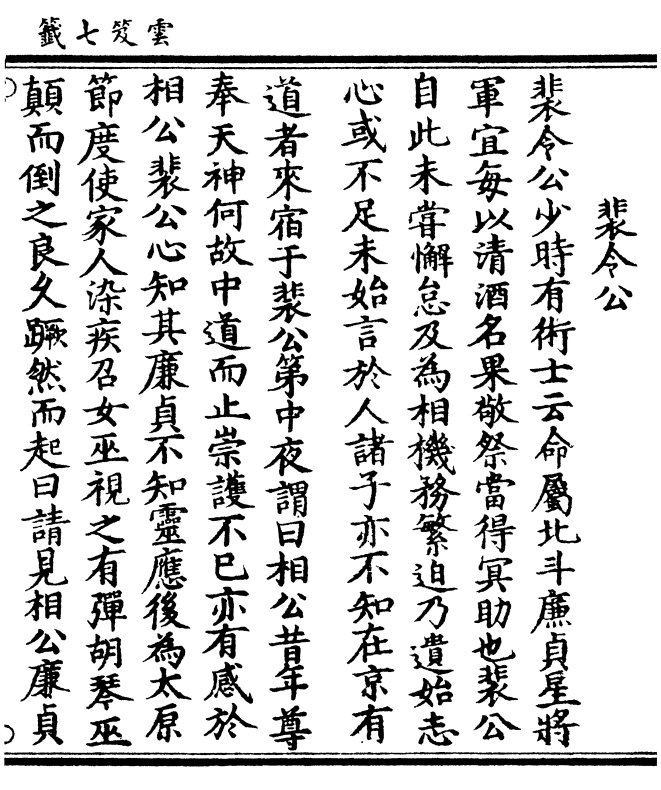 雲笈七籤
裴令公
裴令公少時有術士云命屬北斗廉貞星將
軍宜每以清酒名果敬祭當得冥助也裴公
自此未嘗懈怠及為相機務繁迫乃遺始志
心或不足未始言於人諸子亦不知在京有
道者來宿于裴公第中夜謂曰相公昔年尊
奉天神何故中道而止崇護不已亦有感於
相公裴公心知其廉貞不知靈應後為太原
節度使家人染疾召女巫視之有彈胡琴巫
顛而倒之良久蹶然而起曰請見相公廉貞